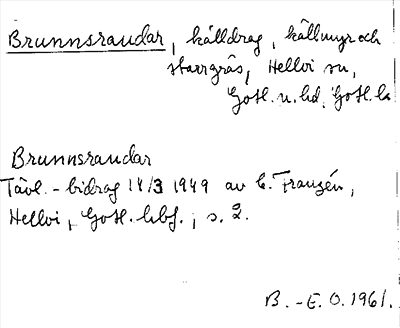 Brunnsraudar, källdrag, källmyr och
starrgräs, Hellvi sn,
Gotl. n. hd, Gotl. l.
Brunnsraudar
Tävl.-bidrag 14/3 1949 av C. Franzén,
Hellvi, Gotl. hbf., s. 2.
B.-E. O. 1961.